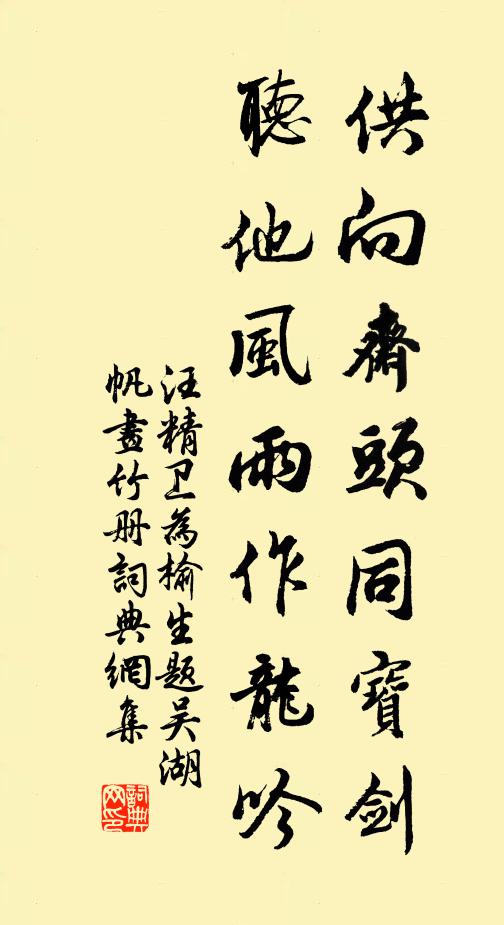 供向齋頭同寶劍
聽他風雨作龍吟
汪精卫為榆生题吴湖
帆畫竹册詞典網集
詞典网印